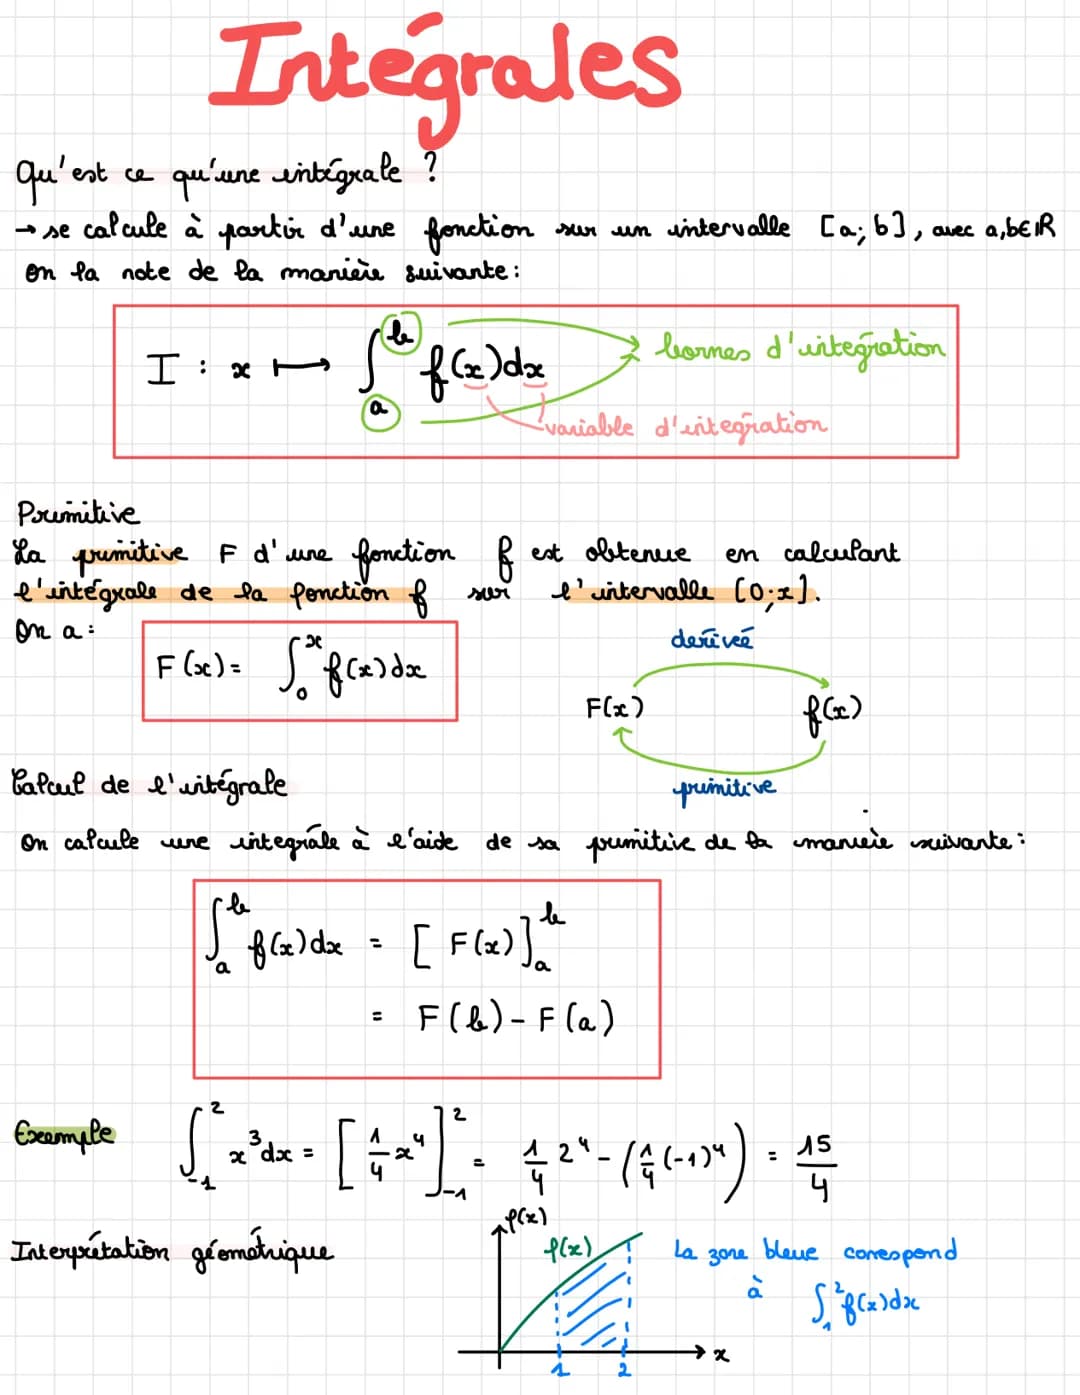 Intégrales
Qu'est ce qu'une intégrale ?
→ se calcule à partir d'une fonction sur un intervalle [a; b], avec a,b∈ℝ
On la note de la manière suivante :
I : x ↦ ∫_a^b f(x)dx
bornes d'intégration
variable d'intégration
Primitive
La primitive F d'une fonction f est obtenue en calculant
l'intégrale de la fonction f sur l'intervalle [0;x].
On a :
F(x) = ∫_0^x f(x)dx
dérivée
F(x) f(x)
primitive
Calcul de l'intégrale
On calcule une intégrale à l'aide de sa primitive de la manière suivante :
∫_a^b f(x)dx = [F(x)]_a^b
= F(b) - F(a)
Exemple ∫_{-1}^2 x^3 dx = [1/4 x^4]_{-1}^2 = 1/4 2^4 - (1/4 (-1)^4) = 15/4
Interprétation géométrique
f(x)
f(x)
La zone bleue correspond
à ∫_1^2 f(x)dx
x
1 2